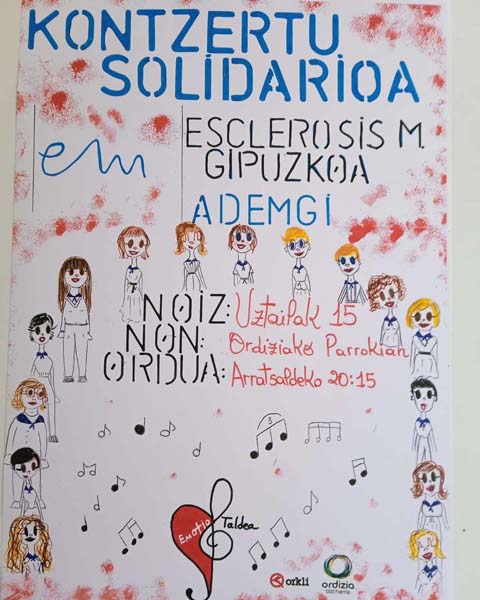 KONTZERTU
SOLIDARIOA
em
ESCLEROSIS M.
GIPUZKOA
ADEMGI
NOIZ: Uztailak 15
NON: Ordiziako Parrokian
ORDUA: Arratsaldeko 20:15
3
EMOTIO Taldea
orkli
ordizia
bizi herria